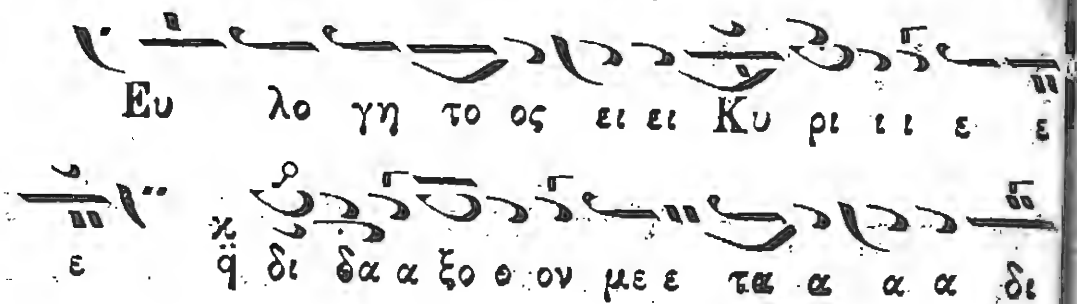 Ευ λο γη το ος ει ει Κυ ρι ι ι ε ε
ε δι δα α ξο ο ον με ε τα α α α δι